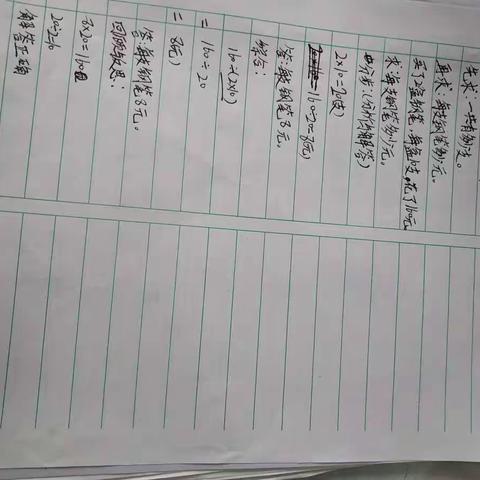 先求:一共有多少支。
再求:每支钢笔多少元。
买了2盒钢笔,每盒10支,花了160元
求:每支钢笔多少元。
由分步:(分析解答)
2×10=20(支)
160÷20=8(元)
答:每支钢笔8元。
综合:
160÷(2×10)
=160÷20
=8(元)
答:每支钢笔8元。
回顾反思:
8×20=160
20÷2=10
解答正确